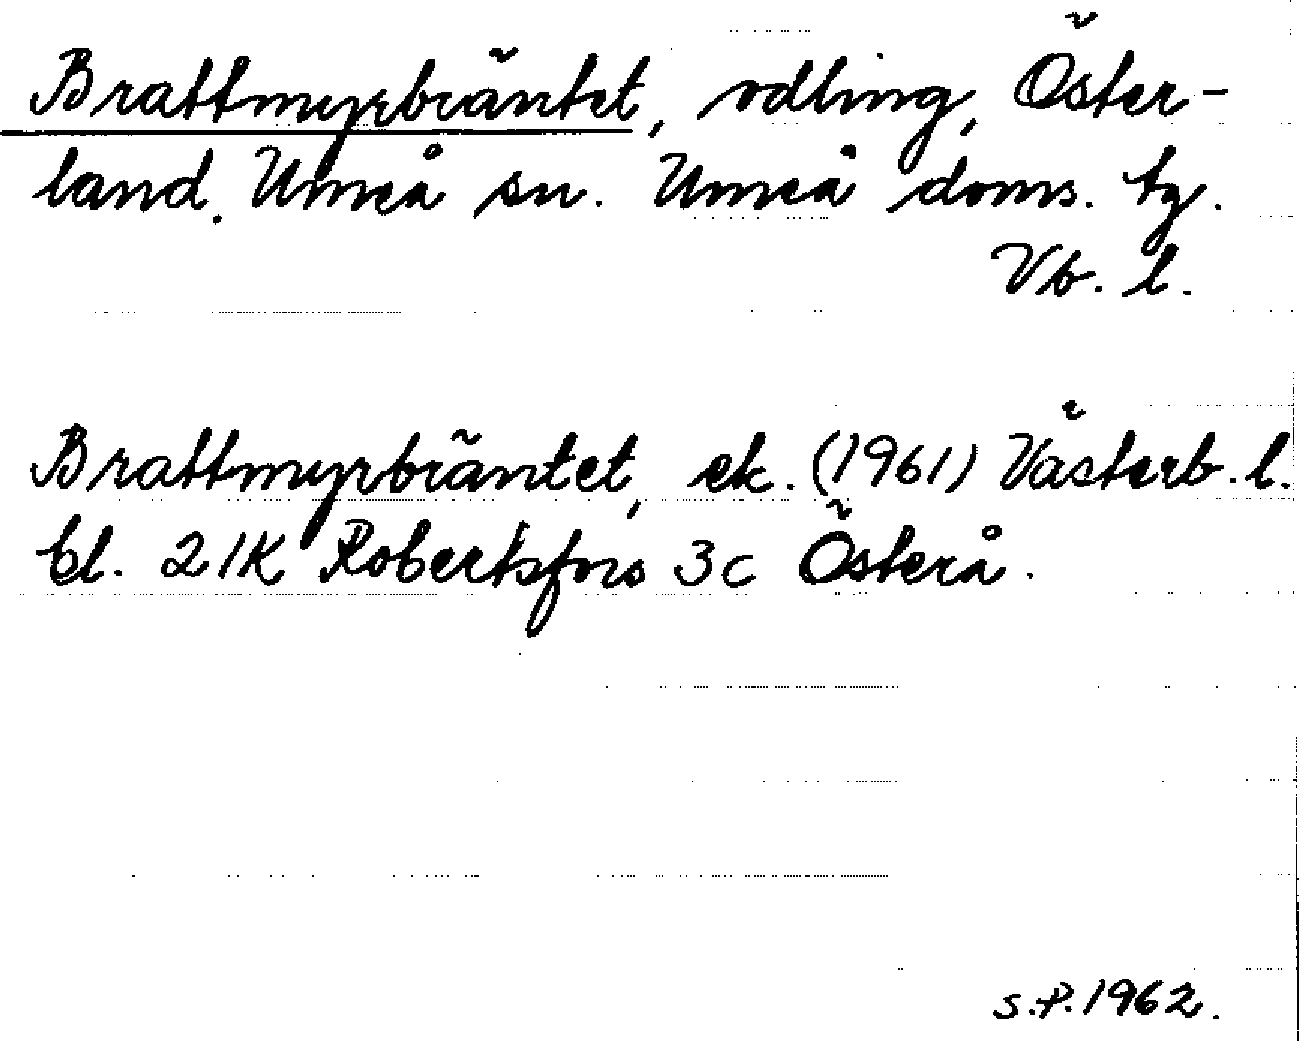 Brattmyrbräntet, odling, Öster-
land. Umeå sn. Umeå doms. tg.
Vb. l.
Brattmyrbräntet, ek. (1961) Västerb. l.
bl. 21K Robertsfors 3c Österå.
S.P. 1962.